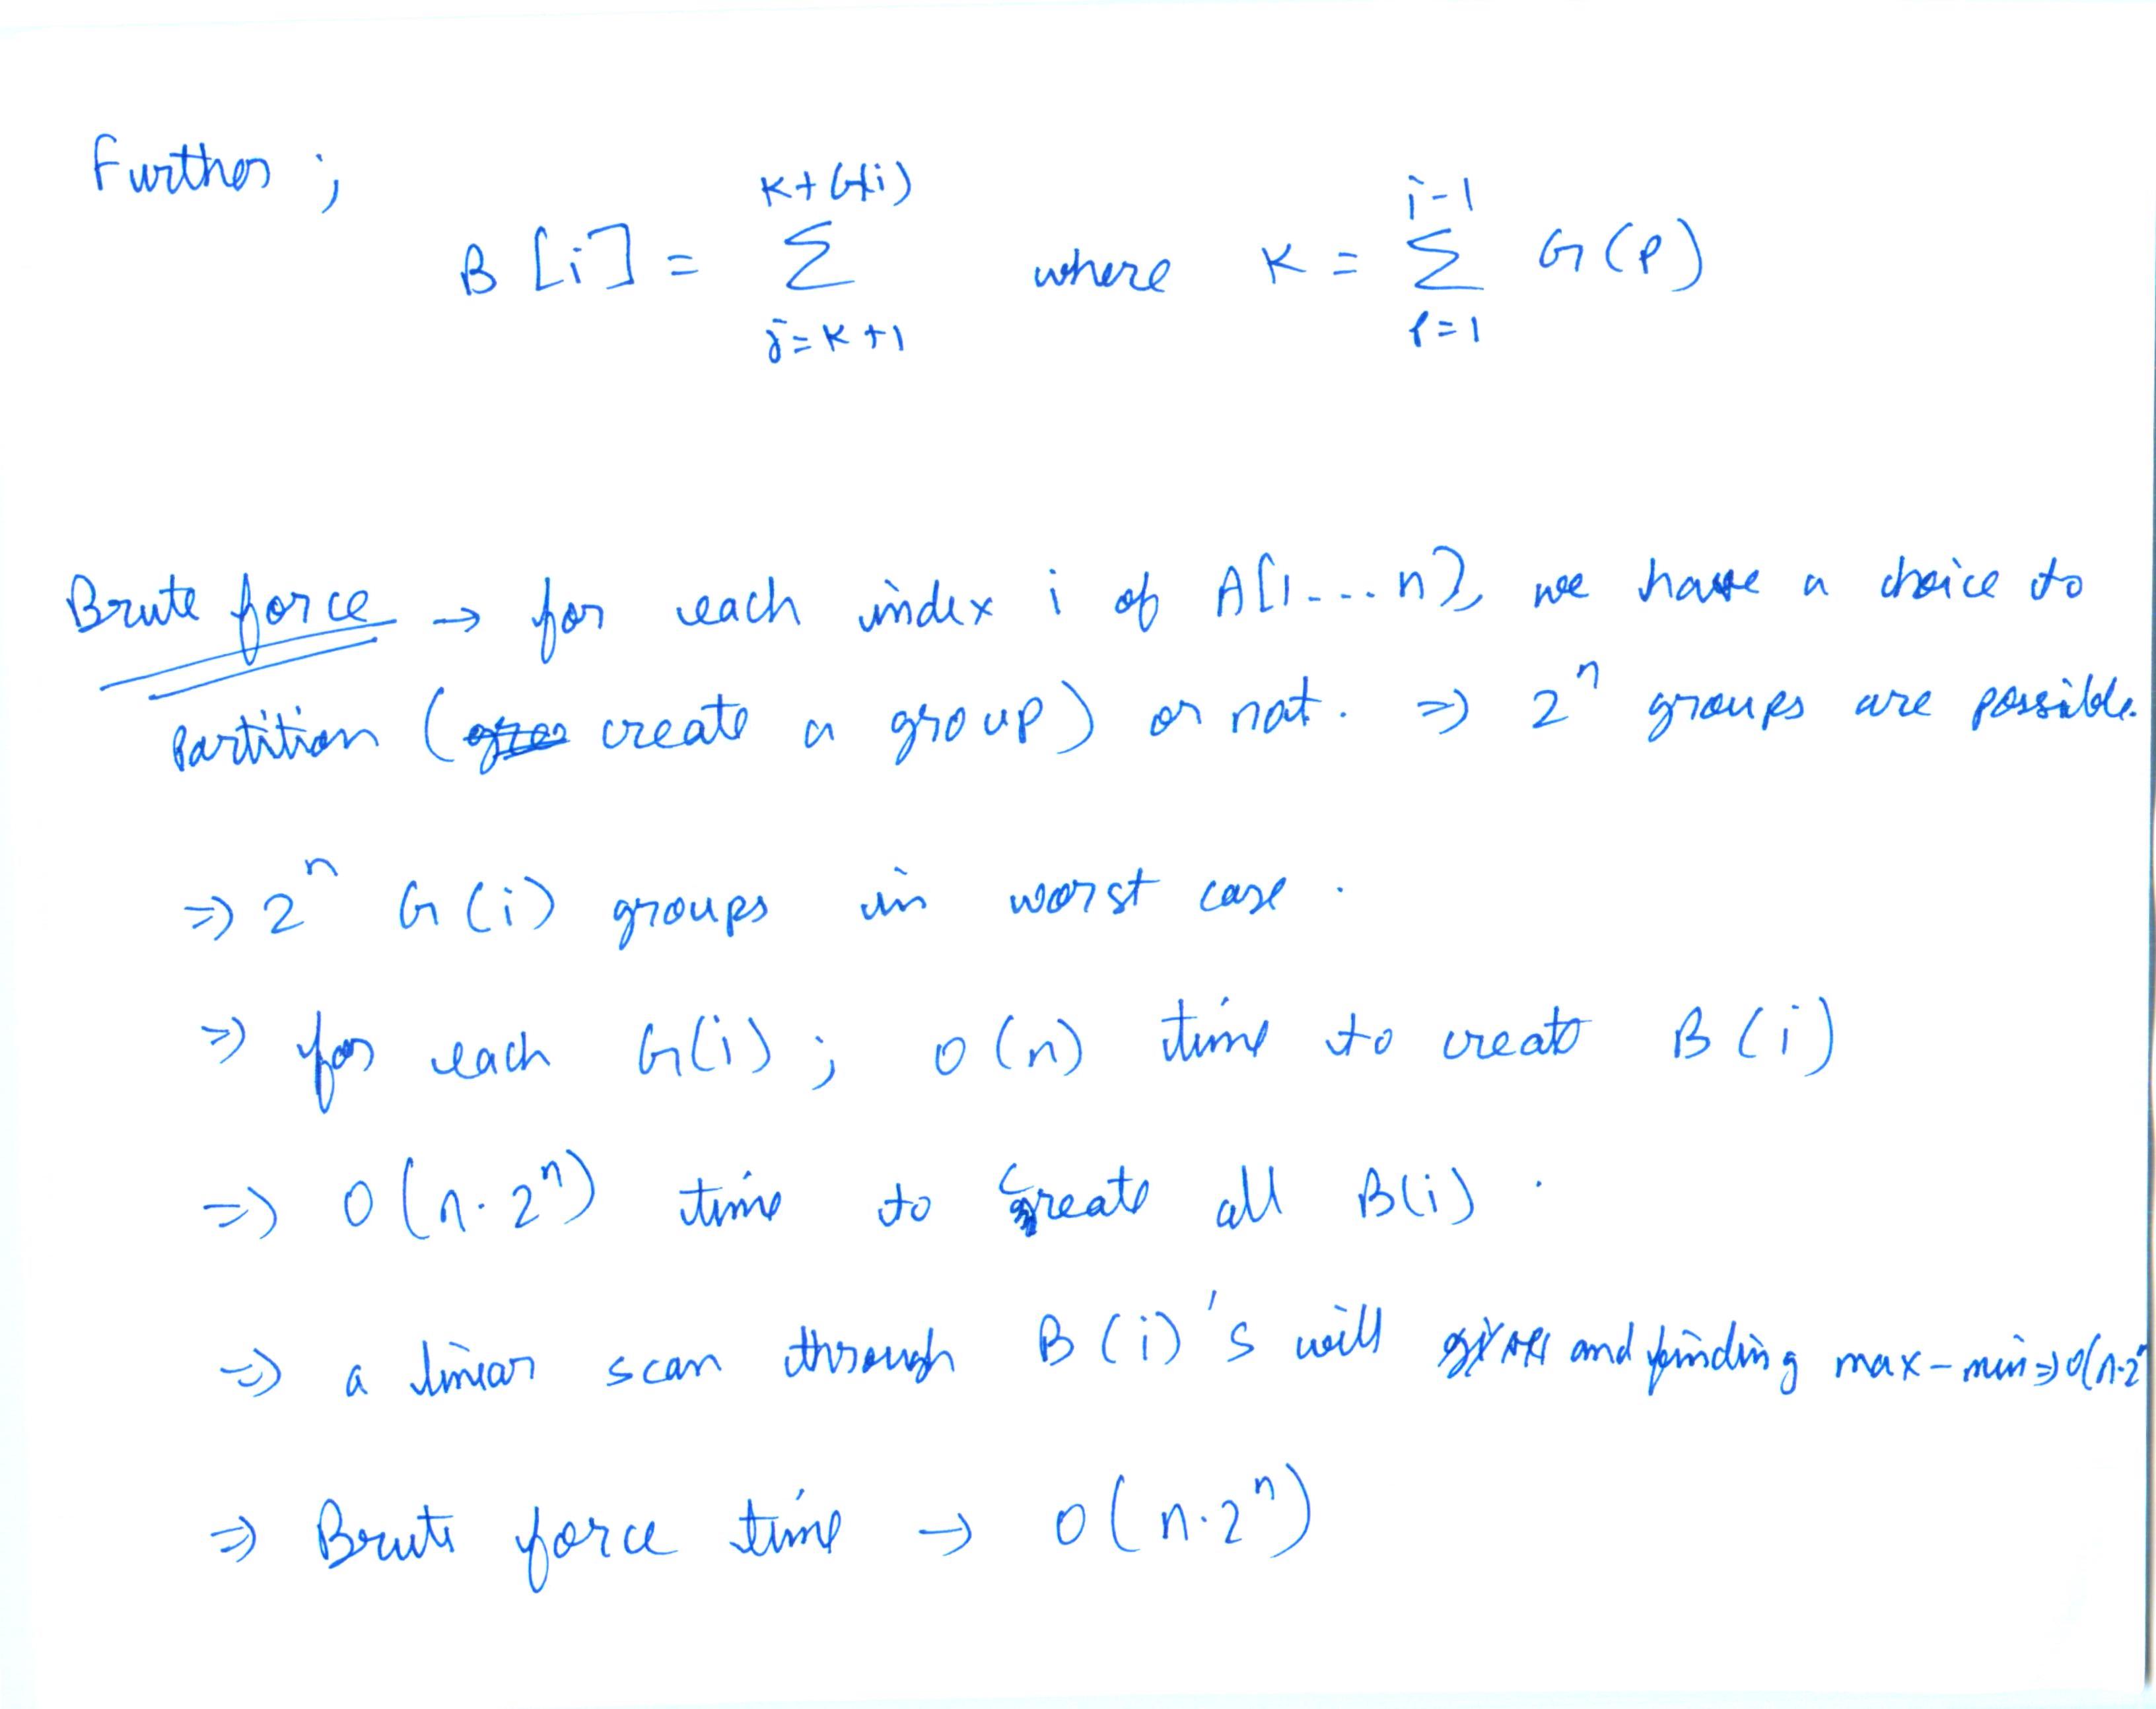 Further ;
B [i] = K+G(i) Σ j=K+1 where K = i-1 Σ p=1 G(P)
Brute force → for each index i of A[1---n], we have a choice to
partition ( create a group) or not. => 2^n groups are possible.
=> 2^n G(i) groups in worst case .
=> for each G(i) ; O(n) time to create B(i)
=> O(n.2^n) time to create all B(i) .
=> a linear scan through B(i)'s will and finding max-min => O(n.2^n
=> Brute force time → O(n.2^n)